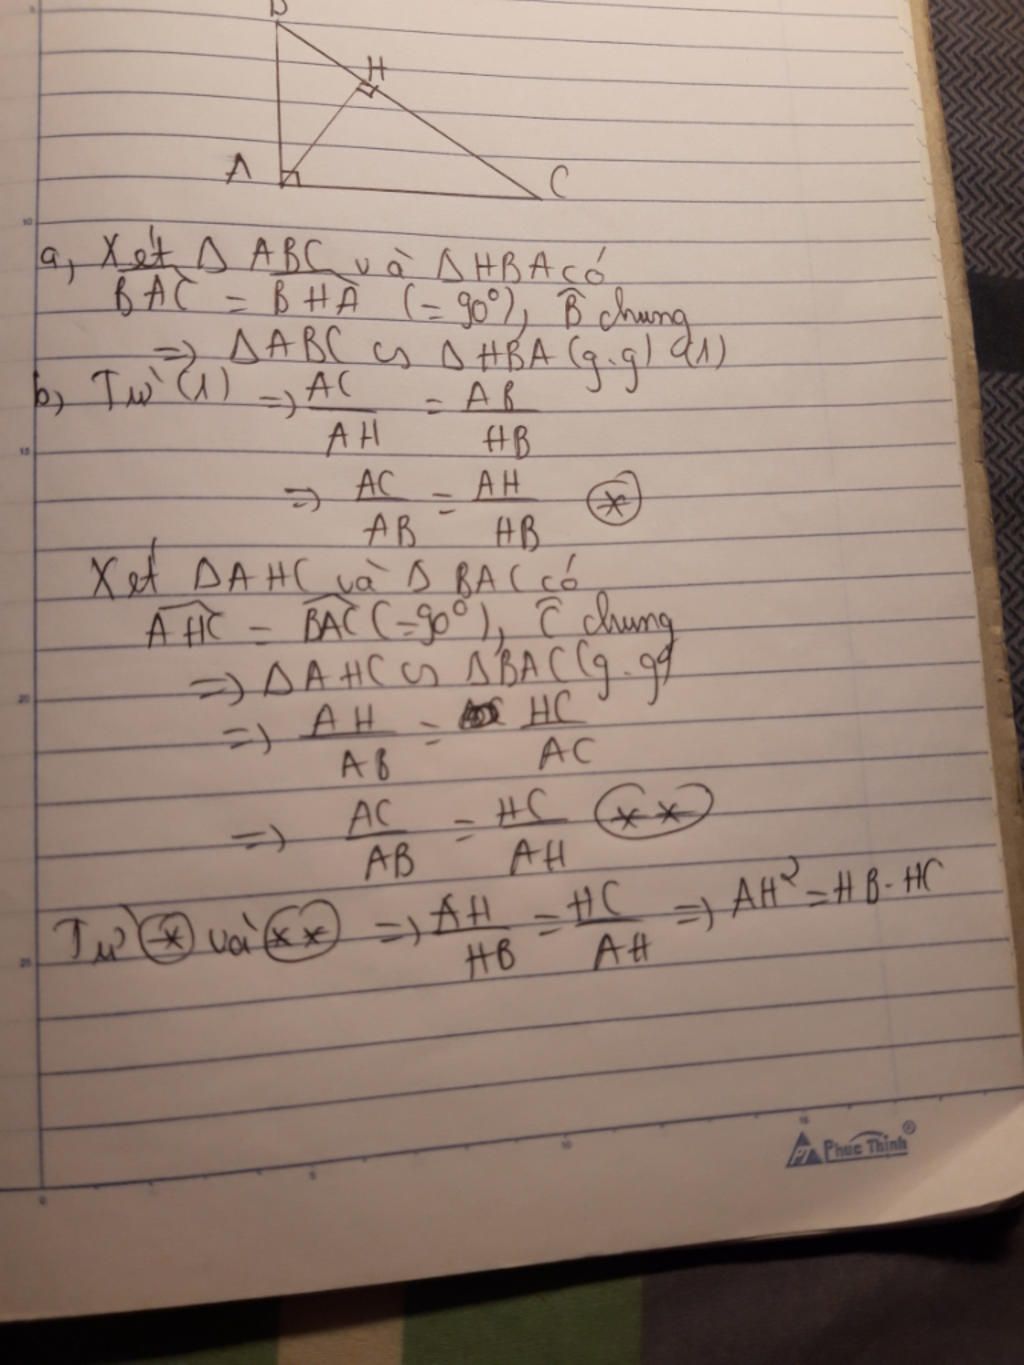 B
H
A
C
a, Xét Δ ABC và Δ HBA có
BAC = BHA (= 90°), B chung
=> Δ ABC ∽ Δ HBA (g.g) (1)
b, Từ (1) => AC/AH = AB/HB
=> AC/AB = AH/HB (*)
Xét Δ AHC và Δ BAC có
AHC = BAC (= 90°), C chung
=> Δ AHC ∽ Δ BAC (g.g)
=> AH/AB = HC/AC
=> AC/AB = HC/AH (**)
Từ (*) và (**) => AH/HB = HC/AH => AH² = HB. HC
Phuc Thinh®
10
15
20
25
0
5
10
15